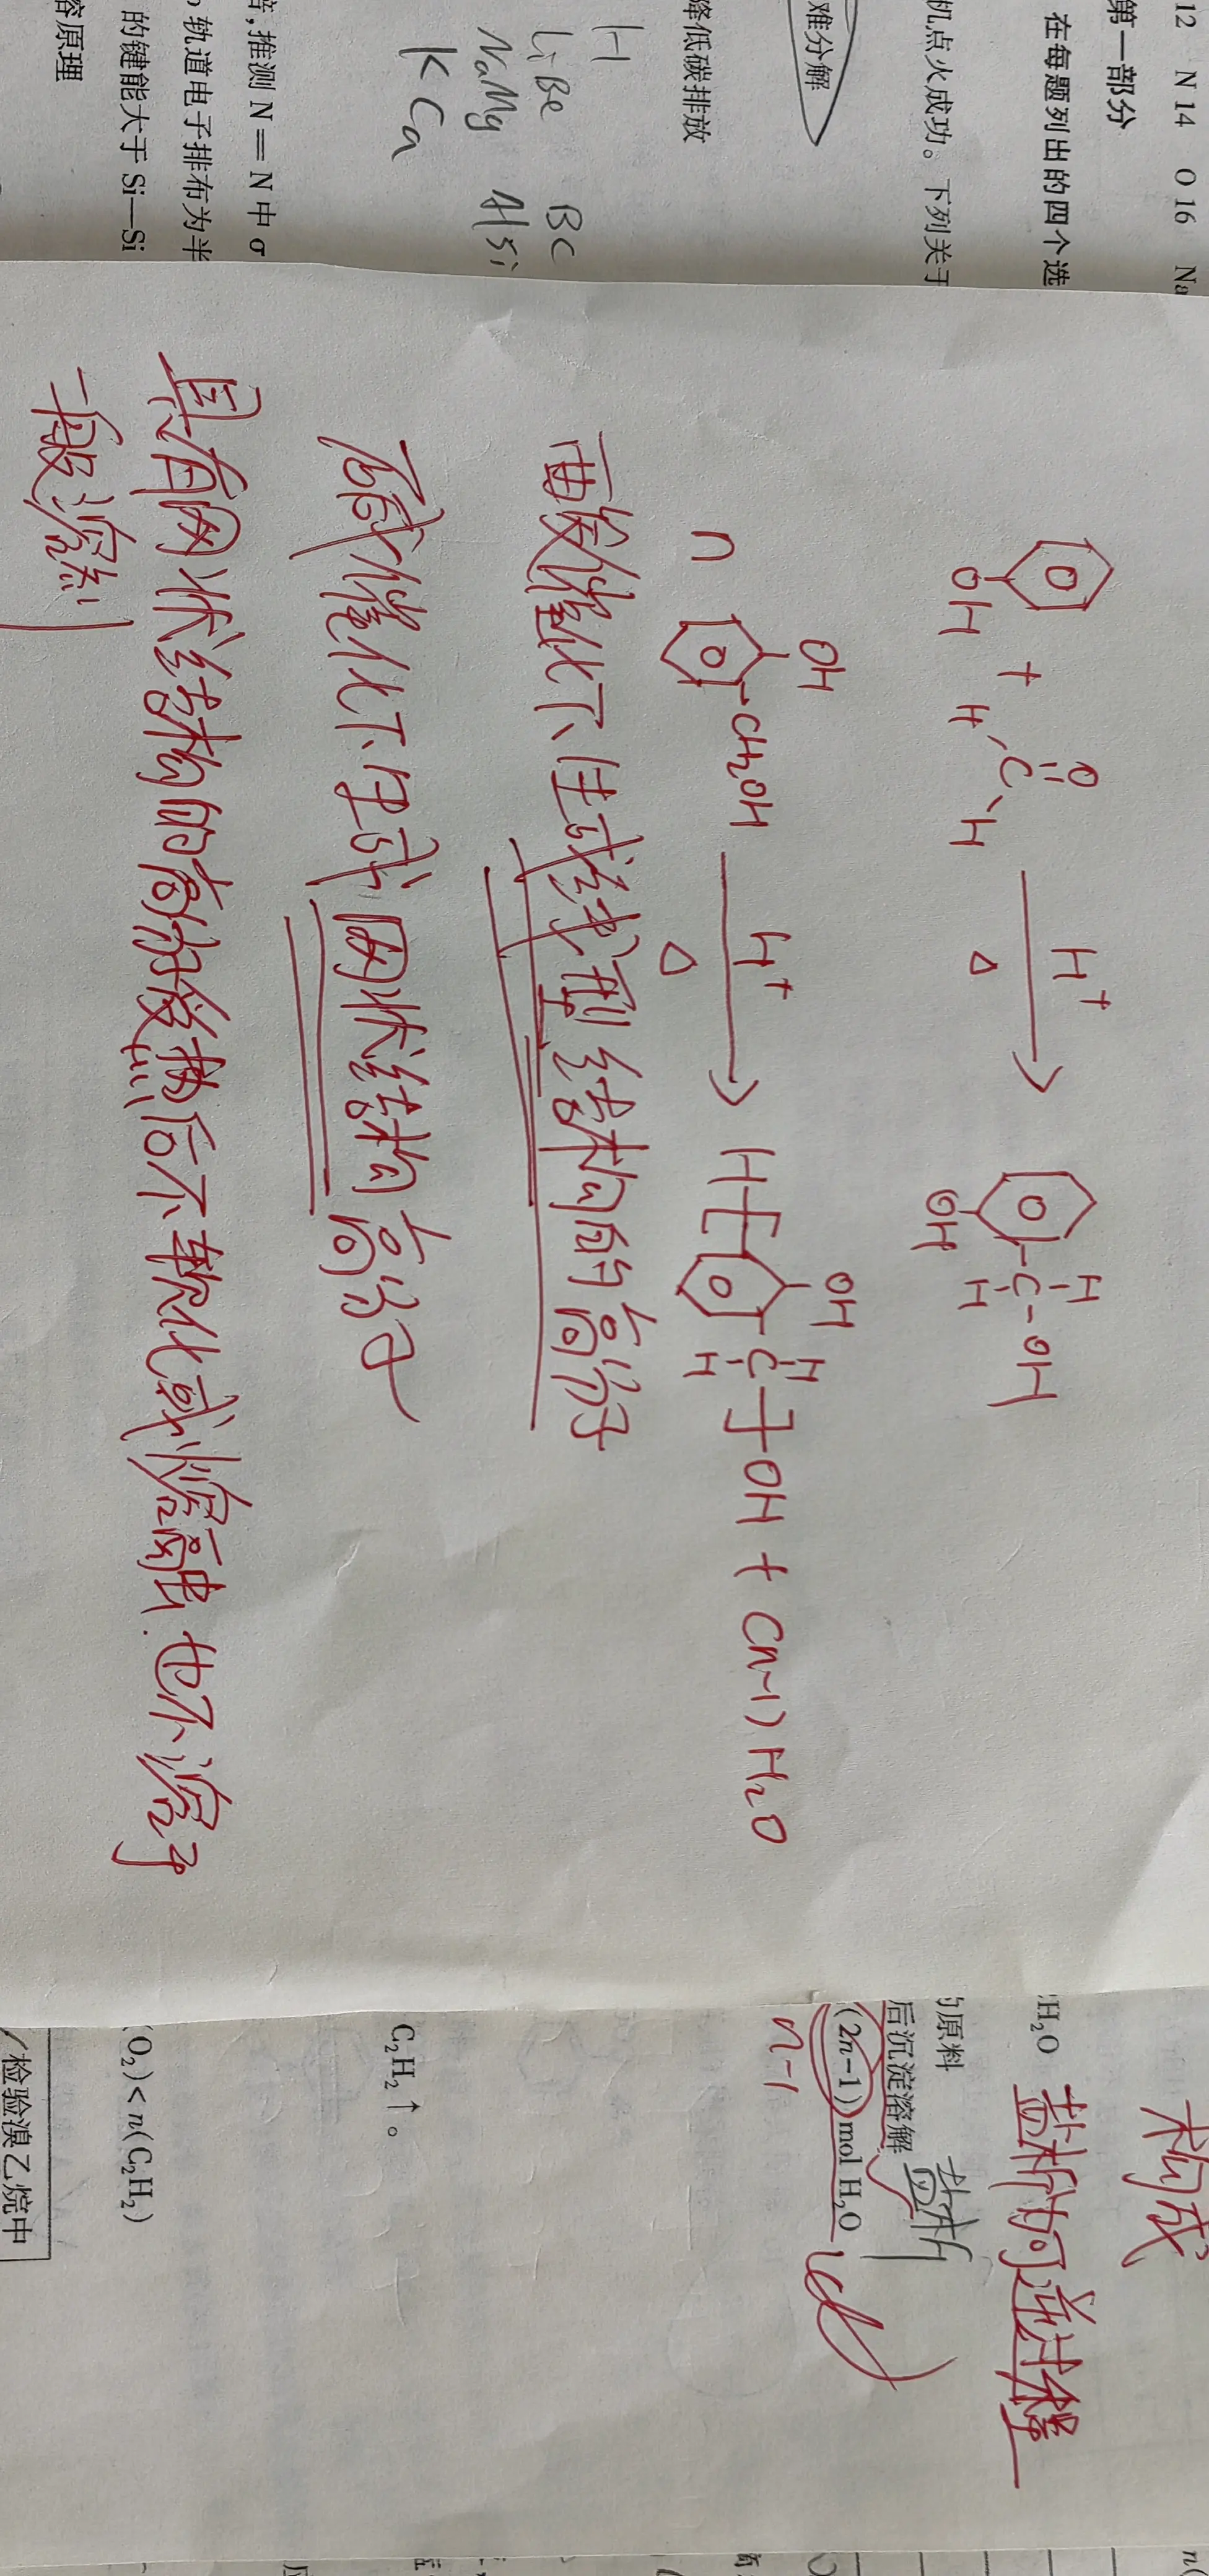 12 N 14 O 16 Na
第一部分
在每题列出的四个选
机点火成功。下列关于
难分解
降低碳排放
H
Li Be B C
Na Mg Al Si
K Ca
倍,推测 N=N 中 σ
轨道电子排布为半
的键能大于 Si—Si
容原理
OH + H C O H H+ △ OH C H H OH
n OH CH2OH H+ △ H [ OH C H H ] OH + (n-1) H2O
酸催化下生成线型结构的高分子
碱催化下生成网状结构高分子
具有网状结构的高分子受热后不软化或熔融也不溶于
一般溶剂
构成
CH₂O 盐析可逆过程
的原料
后沉淀溶解 盐析
(2n-1) mol H₂O
n-1
C₂H₂↑。
(O₂)<n(C₂H₂)
检验溴乙烷中